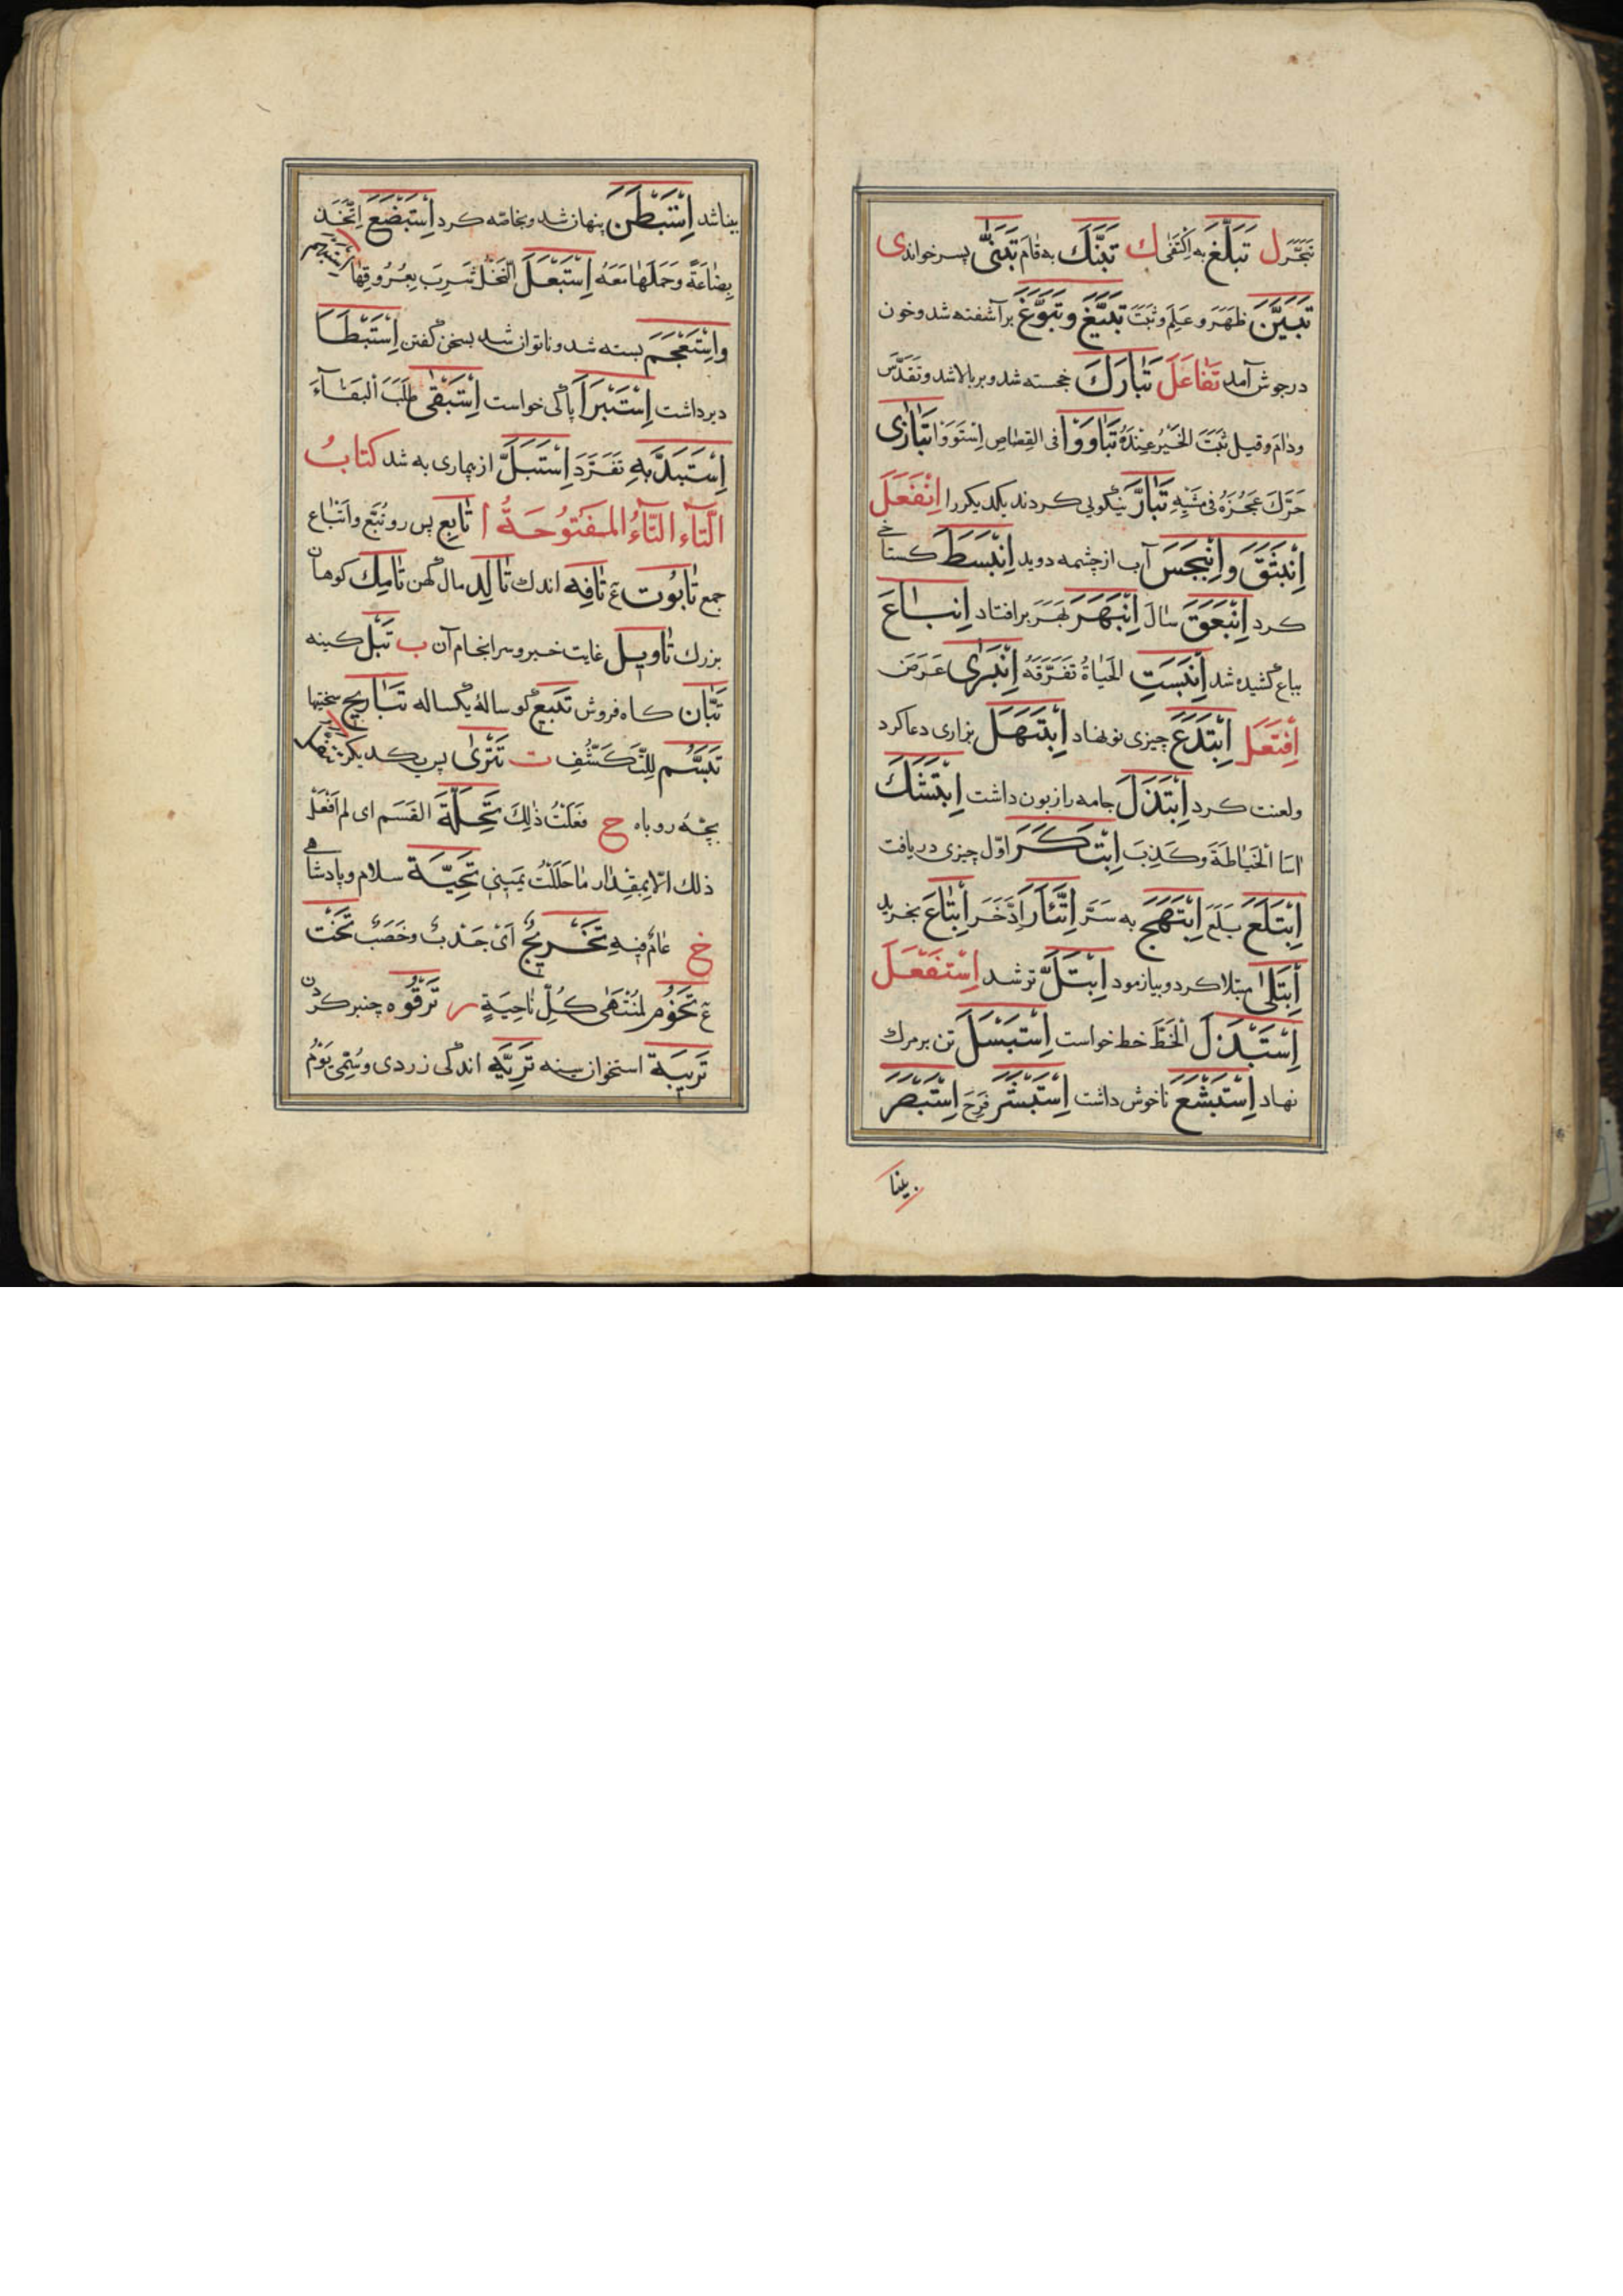 تَبَحَّرَ ل تَبَلَّغَ به اِكْتَفىٰ ك تَبَنَّكَ به قامَ تَبَنّىٰ پسر خواند ى
تَبَيَّنَ ظَهَرَ وعَلِمَ وثَبَتَ تَبَيَّغَ وتَبَوَّغَ بر آشفته شد وخون
در جوش آمد تَفاعَلَ تَبارَكَ خجسته شد وبر بالا شد وتَقَدَّسَ
ودامَ وقيل ثَبَتَ الخَيْرُ عِنْدَهُ تَباوَوْا فى القِصاصِ اِسْتَوَوْا تَبازىٰ
حَرَّكَ عَجُزَهُ فى مَشْيِهِ تَبارَّ نيكويى كردند يكديكررا اِنْفَعَلَ
اِنْبَثَقَ واِنْبَجَسَ آب از چشمه دويد اِنْبَسَطَ كستاخى
كرد اِنْبَعَقَ سالَ اِنْبَهَرَ بَهَرَ بر افتاد اِنباعَ
بباع كشيده شد اِنْبَسَّتِ الحَياةُ تَفَرَّقَهُ اِنْبَرىٰ عَرَضَ
اِفْتَعَلَ اِبْتَدَعَ چيزى نو نهاد اِبْتَهَلَ بزارى دعا كرد
ولعنت كرد اِبْتَذَلَ جامه را زبون داشت اِبْتَشَكَ
اسا الخَياطَةَ وكَذِبَ اِبْتَكَرَ اوّل چيزى دريافت
اِبْتَلَعَ بَلِعَ اِبْتَهَجَ به سَرَّ اِبْتَأَرَ اِدَّخَرَ اِبْتاعَ بخريد
اِبْتَلىٰ مبتلا كرد وبيازمود اِبْتَلَّ تر شد اِسْتَفْعَلَ
اِسْتَبْدَلَ الخَطَّ خط خواست اِسْتَبْسَلَ تن بر مرك
نهاد اِسْتَبْشَعَ ناخوش داشت اِسْتَبْشَرَ فَرِحَ اِسْتَبْصَرَ
بينا
بينا شد اِسْتَبْطَنَ پنهان شد وبخاصّه كرد اِسْتَبْضَعَ اِتَّخَذَ
بِضاعَةً وحَمَلَها مَعَهُ اِسْتَبْعَلَ النَّخْلُ شَرِبَ بِعُرُوقِها اِسْتَبْهَمَ
واِسْتَعْجَمَ بسته شد وناتوان شد بسخن كفتن اِسْتَبْطَا
دير داشت اِسْتَبْرَاَ پاكى خواست اِسْتَبْقىٰ طَلَبَ البَقاءَ
اِسْتَبَدَّ بِهِ تَفَرَّدَ اِسْتَبَلَّ از بيمارى به شد كتابُ
التّآءِ التّآءُ المَفْتُوحَةُ ا تابِع پس رو تُبَّع واَتْباع
جمع تابُوت ع تافِه اندك تالِد مال كهن تامِك كوهان
بزرك تاويل غايت خبر وسرانجام آن ب تَبْل كينه
تَبّان كاه فروش تَبيع كوسالۀ يكساله تَباريح سختيها
تَبَسُّم لِلتَّكَشُّفِ ت تَتْرىٰ پس يكديكر
بچّۀ روباه ح فَعَلْتُ ذٰلِكَ تَحِلَّةَ القَسَمِ اى لم اَفْعَلْ
ذلك الّا بِمِقْدارِ ما حَلَلْتُ يَميني تَحِيَّة سلام وپادشاهى
خ عامٌ فيهِ تَخْريجٌ اَىْ جَدْبٌ وخِصْبٌ تَخْت
ع تَخُوم لمُنْتَهى كُلِّ ناحِيَةٍ ر تَرْقُوَه چنبر كردن
تَريبَة استخوان سينه تَرِيَّه اندكى زردى